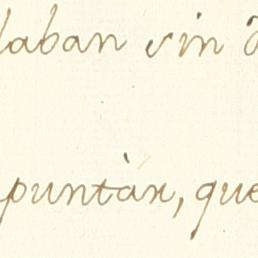 laban sin
puntàn, que